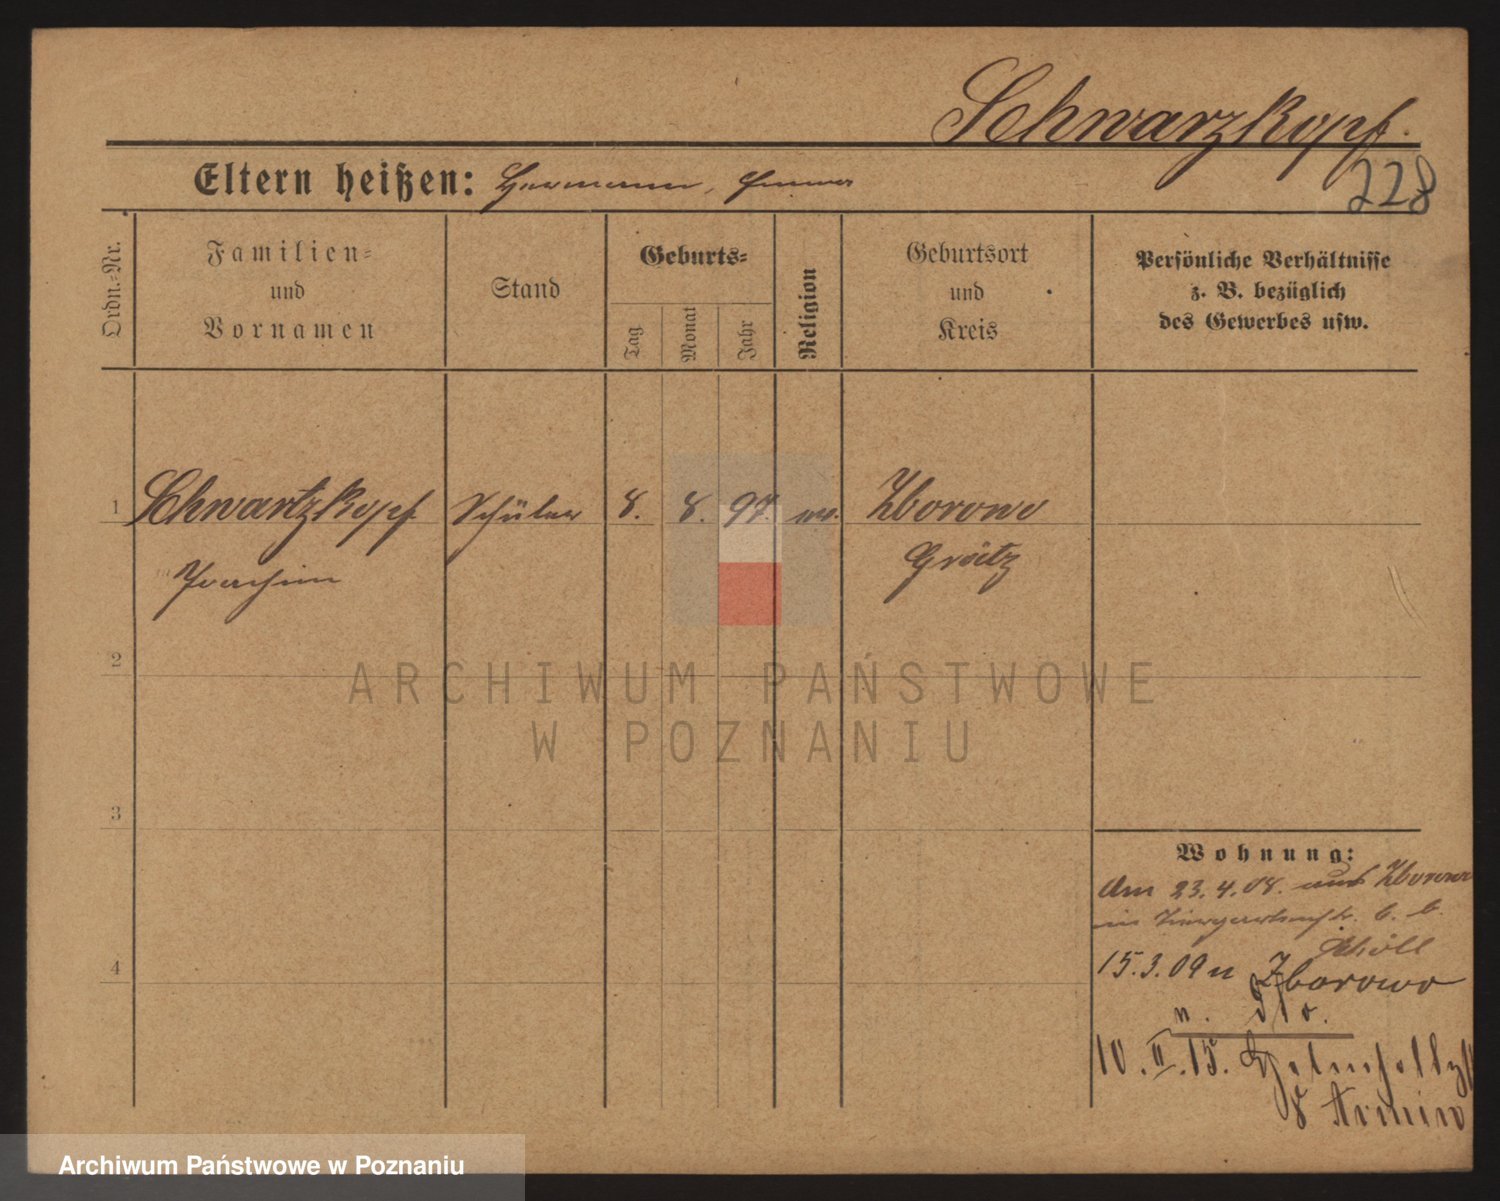 Schwarzkopf.
228
Eltern heißen: Hermann, Emma
Ordn.-Nr.
Familien-
und
Vornamen
Stand
Geburts-
Tag
Monat
Jahr
Religion
Geburtsort
und
Kreis
Persönliche Verhältnisse
z. B. bezüglich
des Gewerbes usw.
1 Schwartzkopf Schüler 8. 8. 97. ev. Zborowo
Joachim Grätz
2
3
4
Wohnung:
Am 23.4.08. aus Zborowo
b. b.
15.3.09 n Zborowo
n.
10.II.15.
Armin
ARCHIWUM PAŃSTWOWE
W POZNANIU
Archiwum Państwowe w Poznaniu